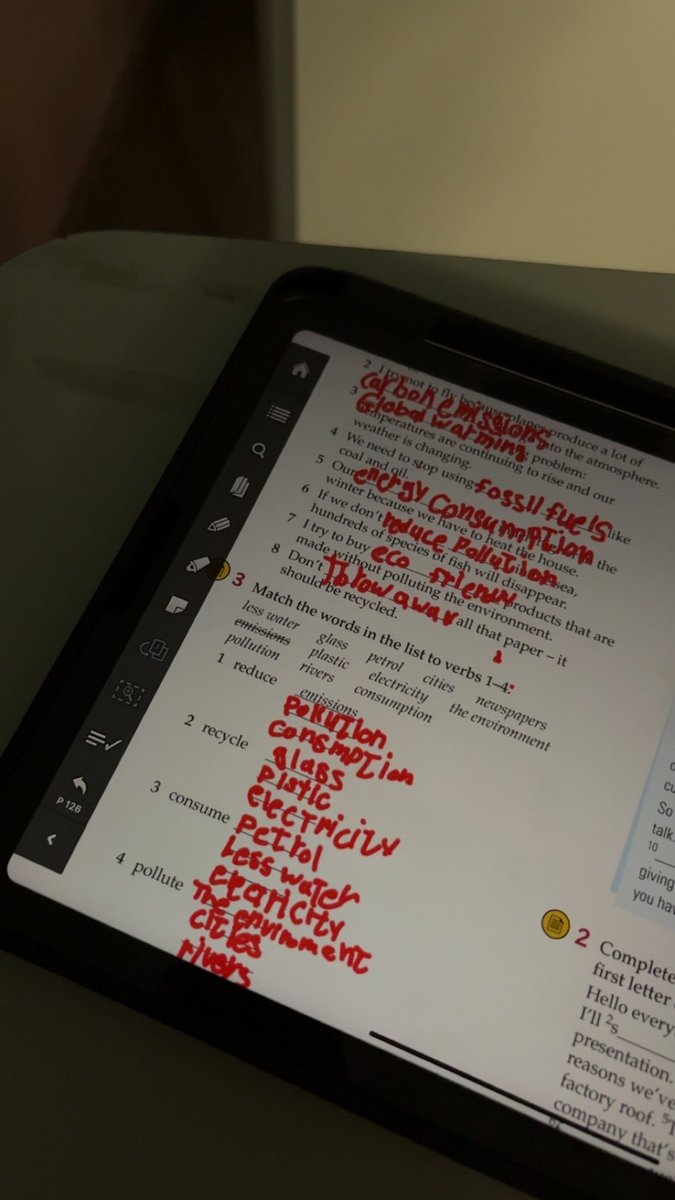 2 I try not to fly because planes produce a lot of
carbon emissions into the atmosphere.
3 Global warming problem:
temperatures are continuing to rise and our
weather is changing.
4 We need to stop using fossil fuels like
coal and oil.
5 Our energy consumption in the
winter because we have to heat the house.
6 If we don't reduce pollution sea,
hundreds of species of fish will disappear.
7 I try to buy eco friendly products that are
made without polluting the environment.
8 Don't all that paper – it
should be recycled.
3 Match the words in the list to verbs 1–4:
less water glass petrol cities newspapers
emissions plastic electricity the environment
pollution rivers consumption
1 reduce emissions
pollution
consmption
2 recycle glass
plstic
electricity
3 consume petrol
less water
4 pollute the environment
cities
rivers
P 126
So
talk.
10
giving
you hav
2 Complete
first letter
Hello every
I'll ²s
presentation.
reasons we've
factory roof. ⁵T
company that's